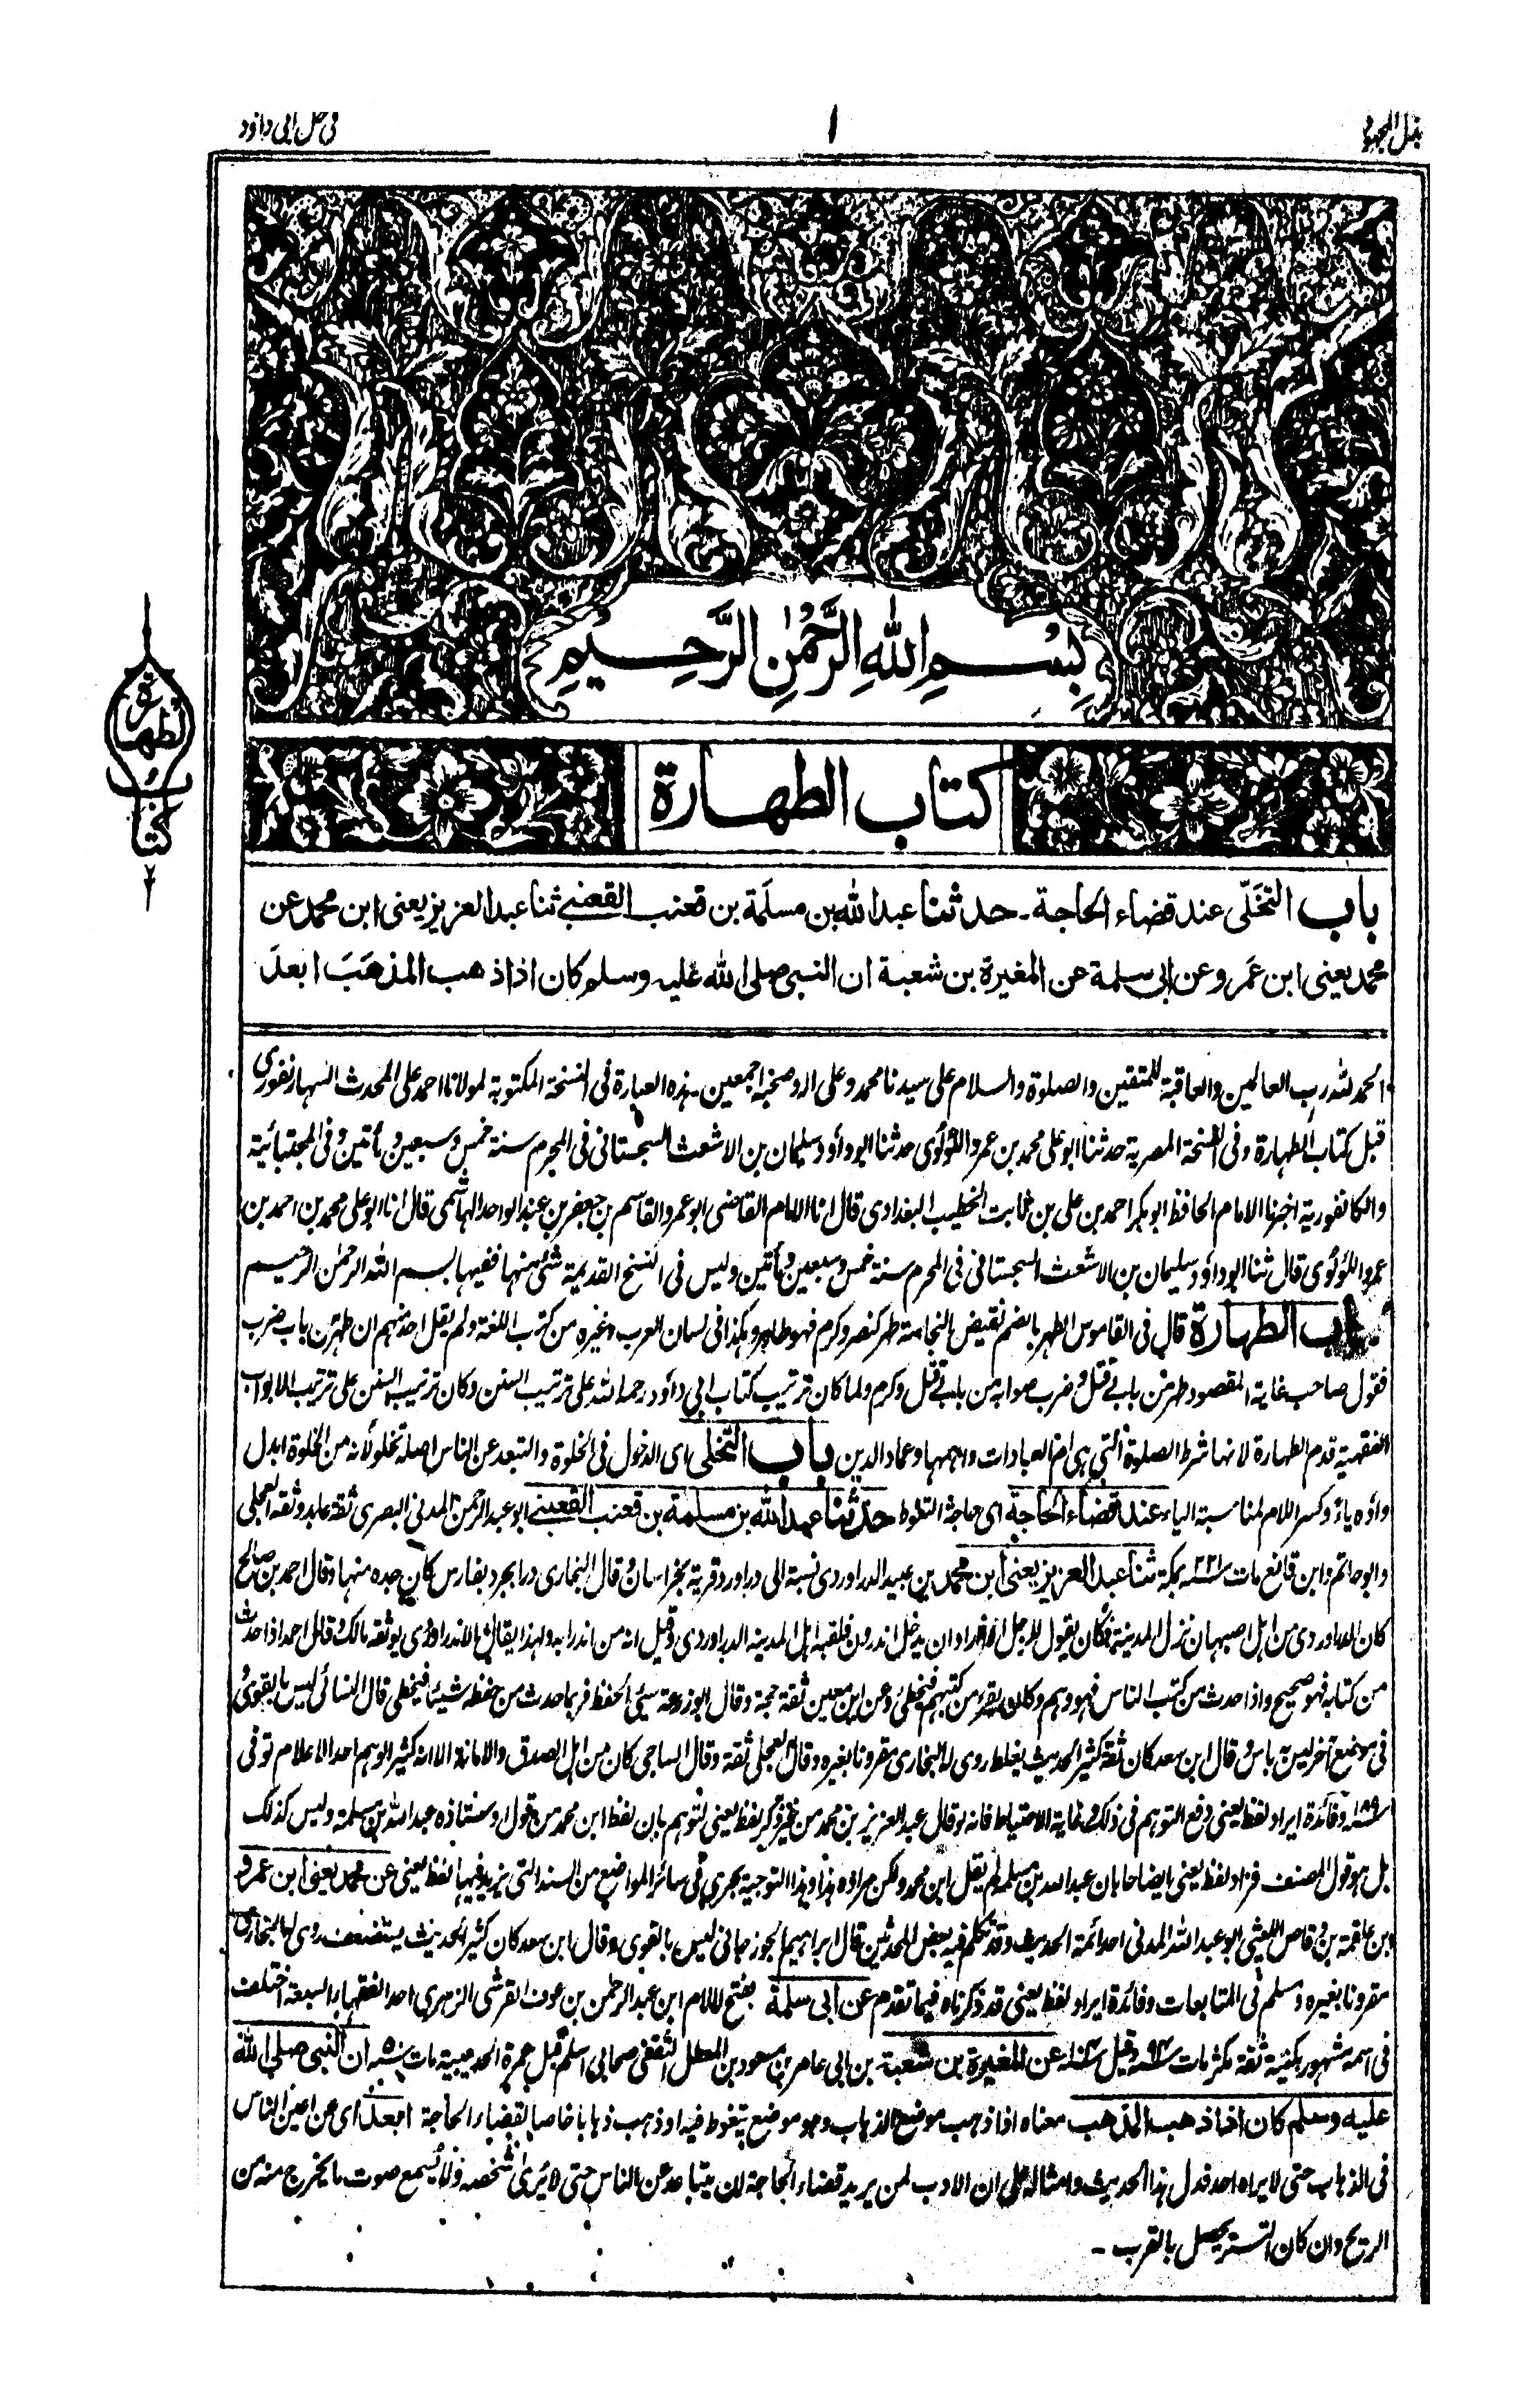 بذل المجهود
١
في حل ابي داؤد
بِسْمِ اللهِ الرَّحْمٰنِ الرَّحِيْمِ
كتاب الطهارة
كتاب الطهارة
باب التخَلّى عند قضاء الحاجة ـ حدثنا عبد الله بن مسلَمة بن قعنب القعنبي ثنا عبد العزيز يعنى ابن محمد عن
محمد يعنى ابن عَمرو عن ابى سلمة عن المغيرة بن شعبة ان النبى صلى الله عليه وسلم كان اذا ذهب المذهَبَ ابعدَ
الحمد لله رب العالمين والعاقبة للمتقين والصلوة والسلام على سيدنا محمد وعلى اله وصحبه اجمعين ـ هذه العبارة فى النسخة المكتوبة لمولانا احمد على المحدث السهارنفورى
قبل كتاب الطهارة وفى النسخة المصرية حدثنا ابو على محمد بن عمرو اللؤلؤى حدثنا ابو داؤد سليمان بن الاشعث السجستانى فى المحرم سنة خمس وسبعين ومأتين وفى المجتبائية
والكانفورية اخبرنا الامام الحافظ ابو بكر احمد بن على بن ثابت الخطيب البغدادى قال انا الامام القاضى ابو عمرو القاسم بن جعفر بن عبد الواحد الهاشمى قال انا ابو على محمد بن احمد بن
عمرو اللؤلؤى قال ثنا ابو داؤد سليمان بن الاشعث السجستانى فى المحرم سنة خمس وسبعين ومأتين وليس فى النسخ القديمة شئ منها ففيها بسم الله الرحمٰن الرحيم
الطهارة قال فى القاموس الطهر بالضم نقيض النجاسة طهر كنصر وكرم فهو طاهر وهكذا فى لسان العرب وغيره من كتب اللغة ولم يقل احد منهم ان طهر من باب ضرب
فقول صاحب غاية المقصود طهر من باب قتل وضرب صوابه من باب قتل وكرم ولما كان ترتيب كتاب ابى داؤد رحمه الله على ترتيب السنن وكان ترتيب السنن على ترتيب الابواب
الفقهية قدم الطهارة لانها شرط الصلوة التى هى ام العبادات واهمها وعماد الدين باب التخلى اى الدخول فى الخلوة والتبعد عن الناس اصله تخلو لانه من الخلوة ابدل
واؤه ياء وكسر اللام لمناسبة الياء عند قضاء الحاجة اى حاجة التغوط حدثنا عبد الله بن مسلمة بن قعنب القعنبي ابو عبد الرحمن المدنى البصرى ثقة عابد وثقه العجلى
وابو حاتم وابن قانع مات ٢٢١ بمكة ثنا عبد العزيز يعنى ابن محمد بن عبيد الدراوردى نسبة الى دراورد قرية بخراسان وقال البخارى درابجرد بفارس كان جده منها وقال احمد بن صالح
كان الدراوردى من اهل اصبهان نزل المدينة فكان يقول للرجل اذا اراد ان يدخل اندرون فلقبه اهل المدينة الدراوردى وقيل انه من اندرابه ولهذا يقال الاندراوردى يوثقه مالك وقال احمد اذا حدث
من كتابه فهو صحيح واذا حدث من كتب الناس فهو وهم وكان يقرء من كتبهم فيخطئ وعن ابن معين ثقة حجة وقال ابو زرعة سيئ الحفظ فربما حدث من حفظه شيئا فيخطى قال النسائى ليس بالقوى و
فى موضع آخر ليس به باس وقال ابن سعد كان ثقة كثير الحديث يغلط روى له البخارى مقرونا بغيره وقال العجلى ثقة وقال الساجى كان من اهل الصدق والامانة الا انه كثير الوهم احد الاعلام توفى
١٨٩ وفائدة ايراد لفظ يعنى دفع التوهم فى ذلك وغاية الاحتياط فانه لو قال عبد العزيز بن محمد من غير ذكر لفظ يعنى لتوهم بان لفظ ابن محمد من قول استاذه عبد الله بن مسلمة وليس كذلك
بل هو قول المصنف فزاد لفظ يعنى ايضاحا بان عبد الله بن مسلمة لم يقل ابن محمد ولكن مراده هذا وهذا التوجيه يجرى فى سائر المواضع من السند التى يزيد فيها لفظ يعنى عن محمد يعنى ابن عمرو
بن علقمة بن وقاص الليثى ابو عبد الله المدنى احد ائمة الحديث وقد تكلم فيه بعض المحدثين قال ابراهيم الجوزجانى ليس بالقوى وقال ابن سعد كان كثير الحديث يستضعف روى له البخارى
مقرونا بغيره ومسلم فى المتابعات وفائدة ايراد لفظ يعنى قد ذكرناه فيما تقدم عن ابى سلمة بفتح اللام ابن عبد الرحمن بن عوف القرشى الزهرى احد الفقهاء السبعة اختلف
فى اسمه مشهور بكنيته ثقة مكثر مات ٩٤ وقيل ١٠٤ عن المغيرة بن شعبة بن ابى عامر بن مسعود بن المعتب الثقفى صحابى اسلم قبل عمرة الحديبية مات ٥٠ ان النبى صلى الله
عليه وسلم كان اذا ذهب المذهب معناه اذا ذهب موضع الذهاب وهو موضع يتغوط فيه او ذهب ذهابا خاصا لقضاء الحاجة ابعد اى عن اعين الناس
فى الذهاب حتى لا يراه احد فدل هذا الحديث وامثاله على ان الادب لمن يريد قضاء الحاجة لان يتباعد عن الناس حتى لا يرىٰ شخصه ولا يُسمع صوت ما يخرج منه من
الريح وان كان التستر يحصل بالقرب ـ